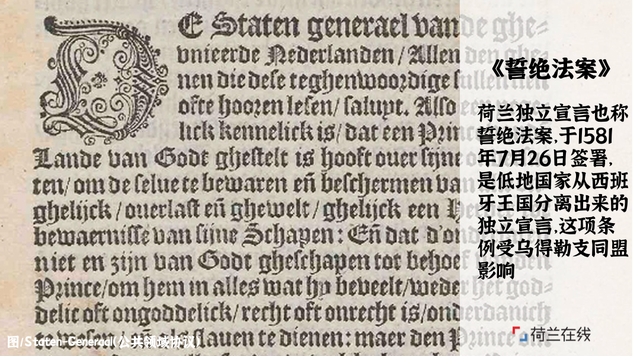 DE Staten generael vande ghe=
vnieerde Nederlanden / Allen den ghe=
nen die dese teghenwoordige sullen
ofte hooren lesen / saluyt. Also een
lick kennelick is / dat een Prin
Lande van Godt ghestelt is hooft ouer sijne
ten / om de selue te bewaren eñ beschermen van
ghelijck / ouerlast eñ ghewelt / ghelijck een
bewaernisse van sijne Schapen: Eñ dat d'on
niet en zijn van Godt gheschapen tot behoef
Prince / om hem in alles wat hy beveelt / weder het god=
delic oft ongoddelick / recht oft onrecht is / onderdanich
als slauen te dienen: maer den Prince
《誓绝法案》
荷兰独立宣言也称
誓绝法案,于1581
年7月26日签署,
是低地国家从西班
牙王国分离出来的
独立宣言,这项条
例受乌得勒支同盟
影响
图/Staten-Generaal(公共领域协议)
荷兰在线